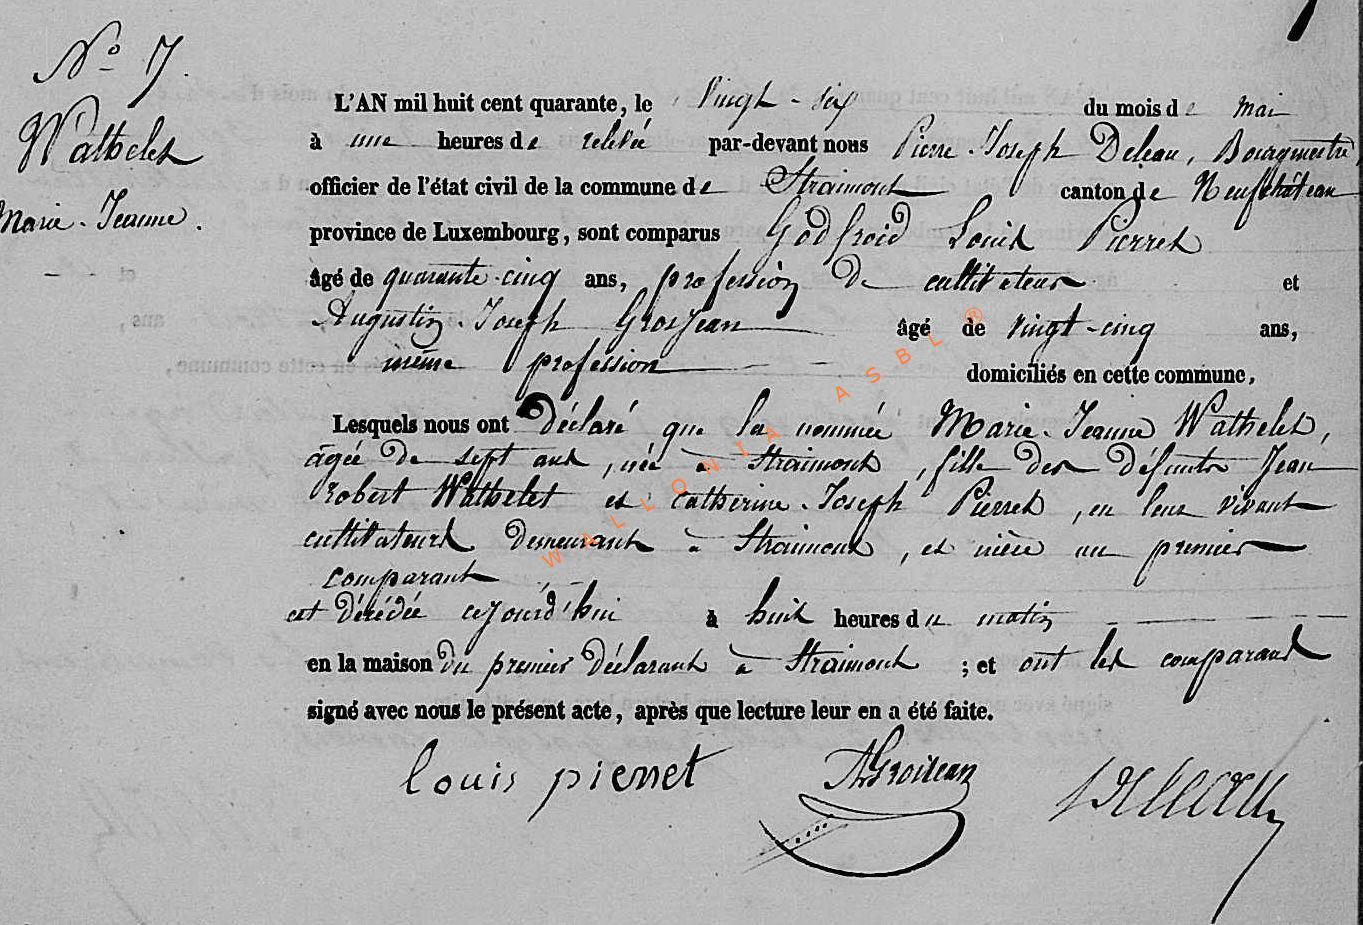 N.º 7.
Wathelet
Marie-Jeanne.
L'AN mil huit cent quarante, le vingt-six du mois de mai
à une heures de relevée par-devant nous Pierre-Joseph Deleau, Bourgmestre
officier de l'état civil de la commune de Straimont canton de Neufchâteau
province de Luxembourg, sont comparus Godfroid Louis Pierret
âgé de quarante-cinq ans, profession de cultivateur et
Augustin-Joseph Grosjean âgé de vingt-cinq ans,
même profession domiciliés en cette commune,
Lesquels nous ont déclaré que la nommée Marie-Jeanne Wathelet,
âgée de sept ans, née à Straimont, fille des défunts Jean
Robert Wathelet et Catherine-Joseph Pierret, en leur vivant
cultivateurs demeurant à Straimont, et nièce au premier
comparant
est décédée cejourd'hui à huit heures du matin
en la maison du premier déclarant à Straimont ; et ont les comparans
signé avec nous le présent acte, après que lecture leur en a été faite.
louis pierret AGrosjean
WALLONIA ASBL ®